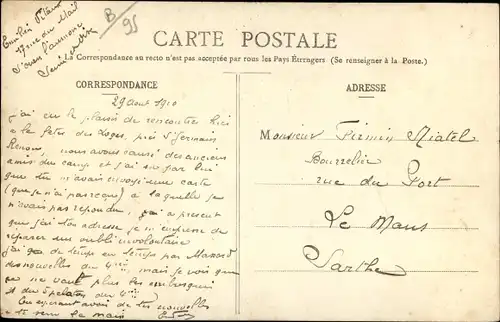 17 rue du Mail
St ouen l'aumone
Seine et Oise
B/95
CARTE POSTALE
La Correspondance au recto n'est pas acceptée par tous les Pays Étrangers (Se renseigner à la Poste.)
CORRESPONDANCE
29 Aout 1910
j'ai eu le plaisir de rencontrer hier
a la fetes des Loges, près St Germain
Renou, nous avons causé des anciens
amis du camp et j'ai su par lui
que tu m'avais envoyé une carte
(que je n'ai pas reçue) à laquelle je
n'avais pas répondu, j'ai a present
que j'ai ton adresse, je m'empresse de
réparer un oubli involontaire
j'ai de temps en temps par
des nouvelles du 4eme, mais je vois que
ce ne vaut plus les
et du 5 peloton du 4eme
En esperant avoir de tes nouvelles
je te serre la main
ADRESSE
Monsieur Firmin Miatel
Bourrelier
rue du Port
Le Mans
Sarthe